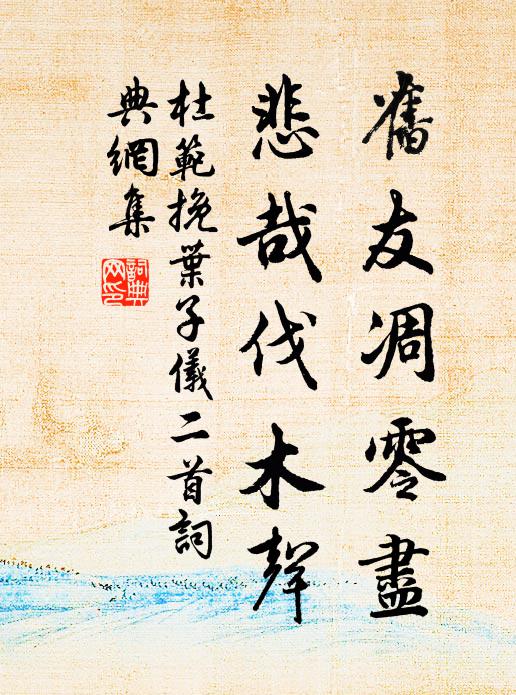 舊友凋零盡
悲哉伐木聲
杜範挽葉子儀二首詞
典網集
詞典網印